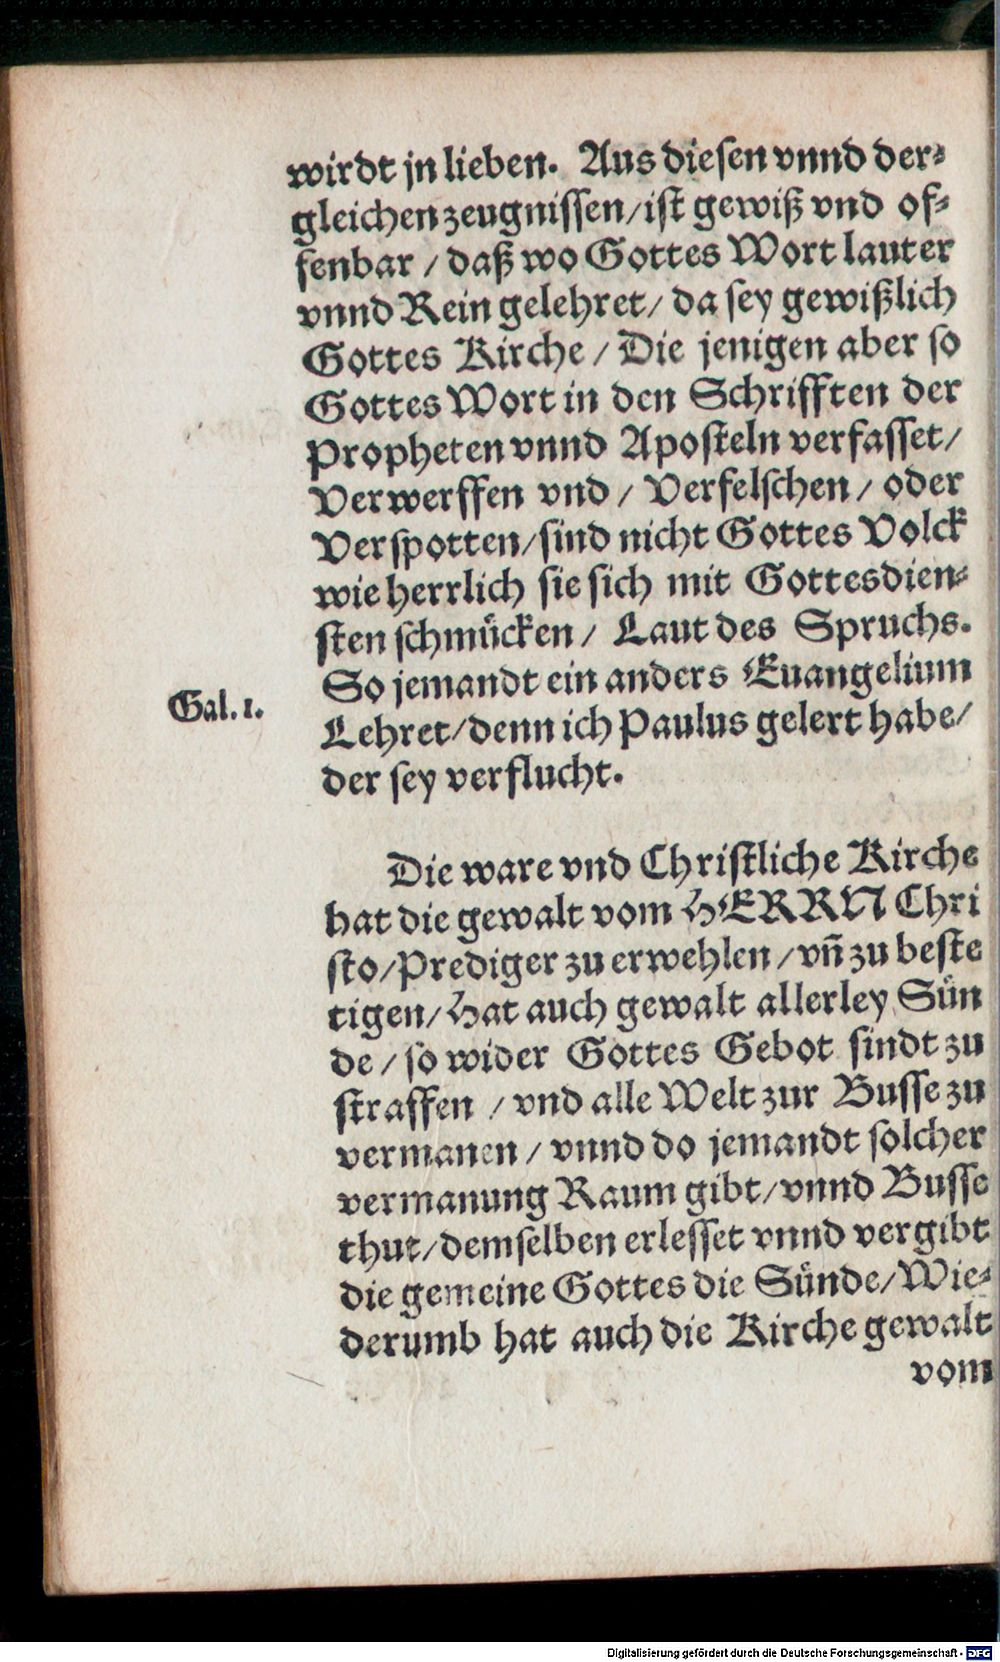 wirdt jn lieben. Aus diesen vnnd der⸗
gleichen zeugnissen/ist gewiß vnd of⸗
fenbar / daß wo Gottes Wort lauter
vnnd Rein gelehret/ da sey gewißlich
Gottes Kirche / Die jenigen aber so
Gottes Wort in den Schrifften der
Propheten vnnd Aposteln verfasset/
Verwerffen vnd / Verfelschen / oder
Verspotten/sind nicht Gottes Volck
wie herrlich sie sich mit Gottesdien⸗
sten schmücken / Laut des Spruchs.
So jemandt ein anders Euangelium
Gal. 1.
Lehret/denn ich Paulus gelert habe/
der sey verflucht.
Die ware vnd Christliche Kirche
hat die gewalt vom HERRN Chri
sto/Prediger zu erwehlen /vñ zu beste
tigen/Hat auch gewalt allerley Sün
de / so wider Gottes Gebot sindt zu
straffen / vnd alle Welt zur Busse zu
vermanen / vnnd do jemandt solcher
vermanung Raum gibt/vnnd Busse
thut/demselben erlesset vnnd vergibt
die gemeine Gottes die Sünde/Wie⸗
derumb hat auch die Kirche gewalt
vom
Digitalisierung gefördert durch die Deutsche Forschungsgemeinschaft - DFG